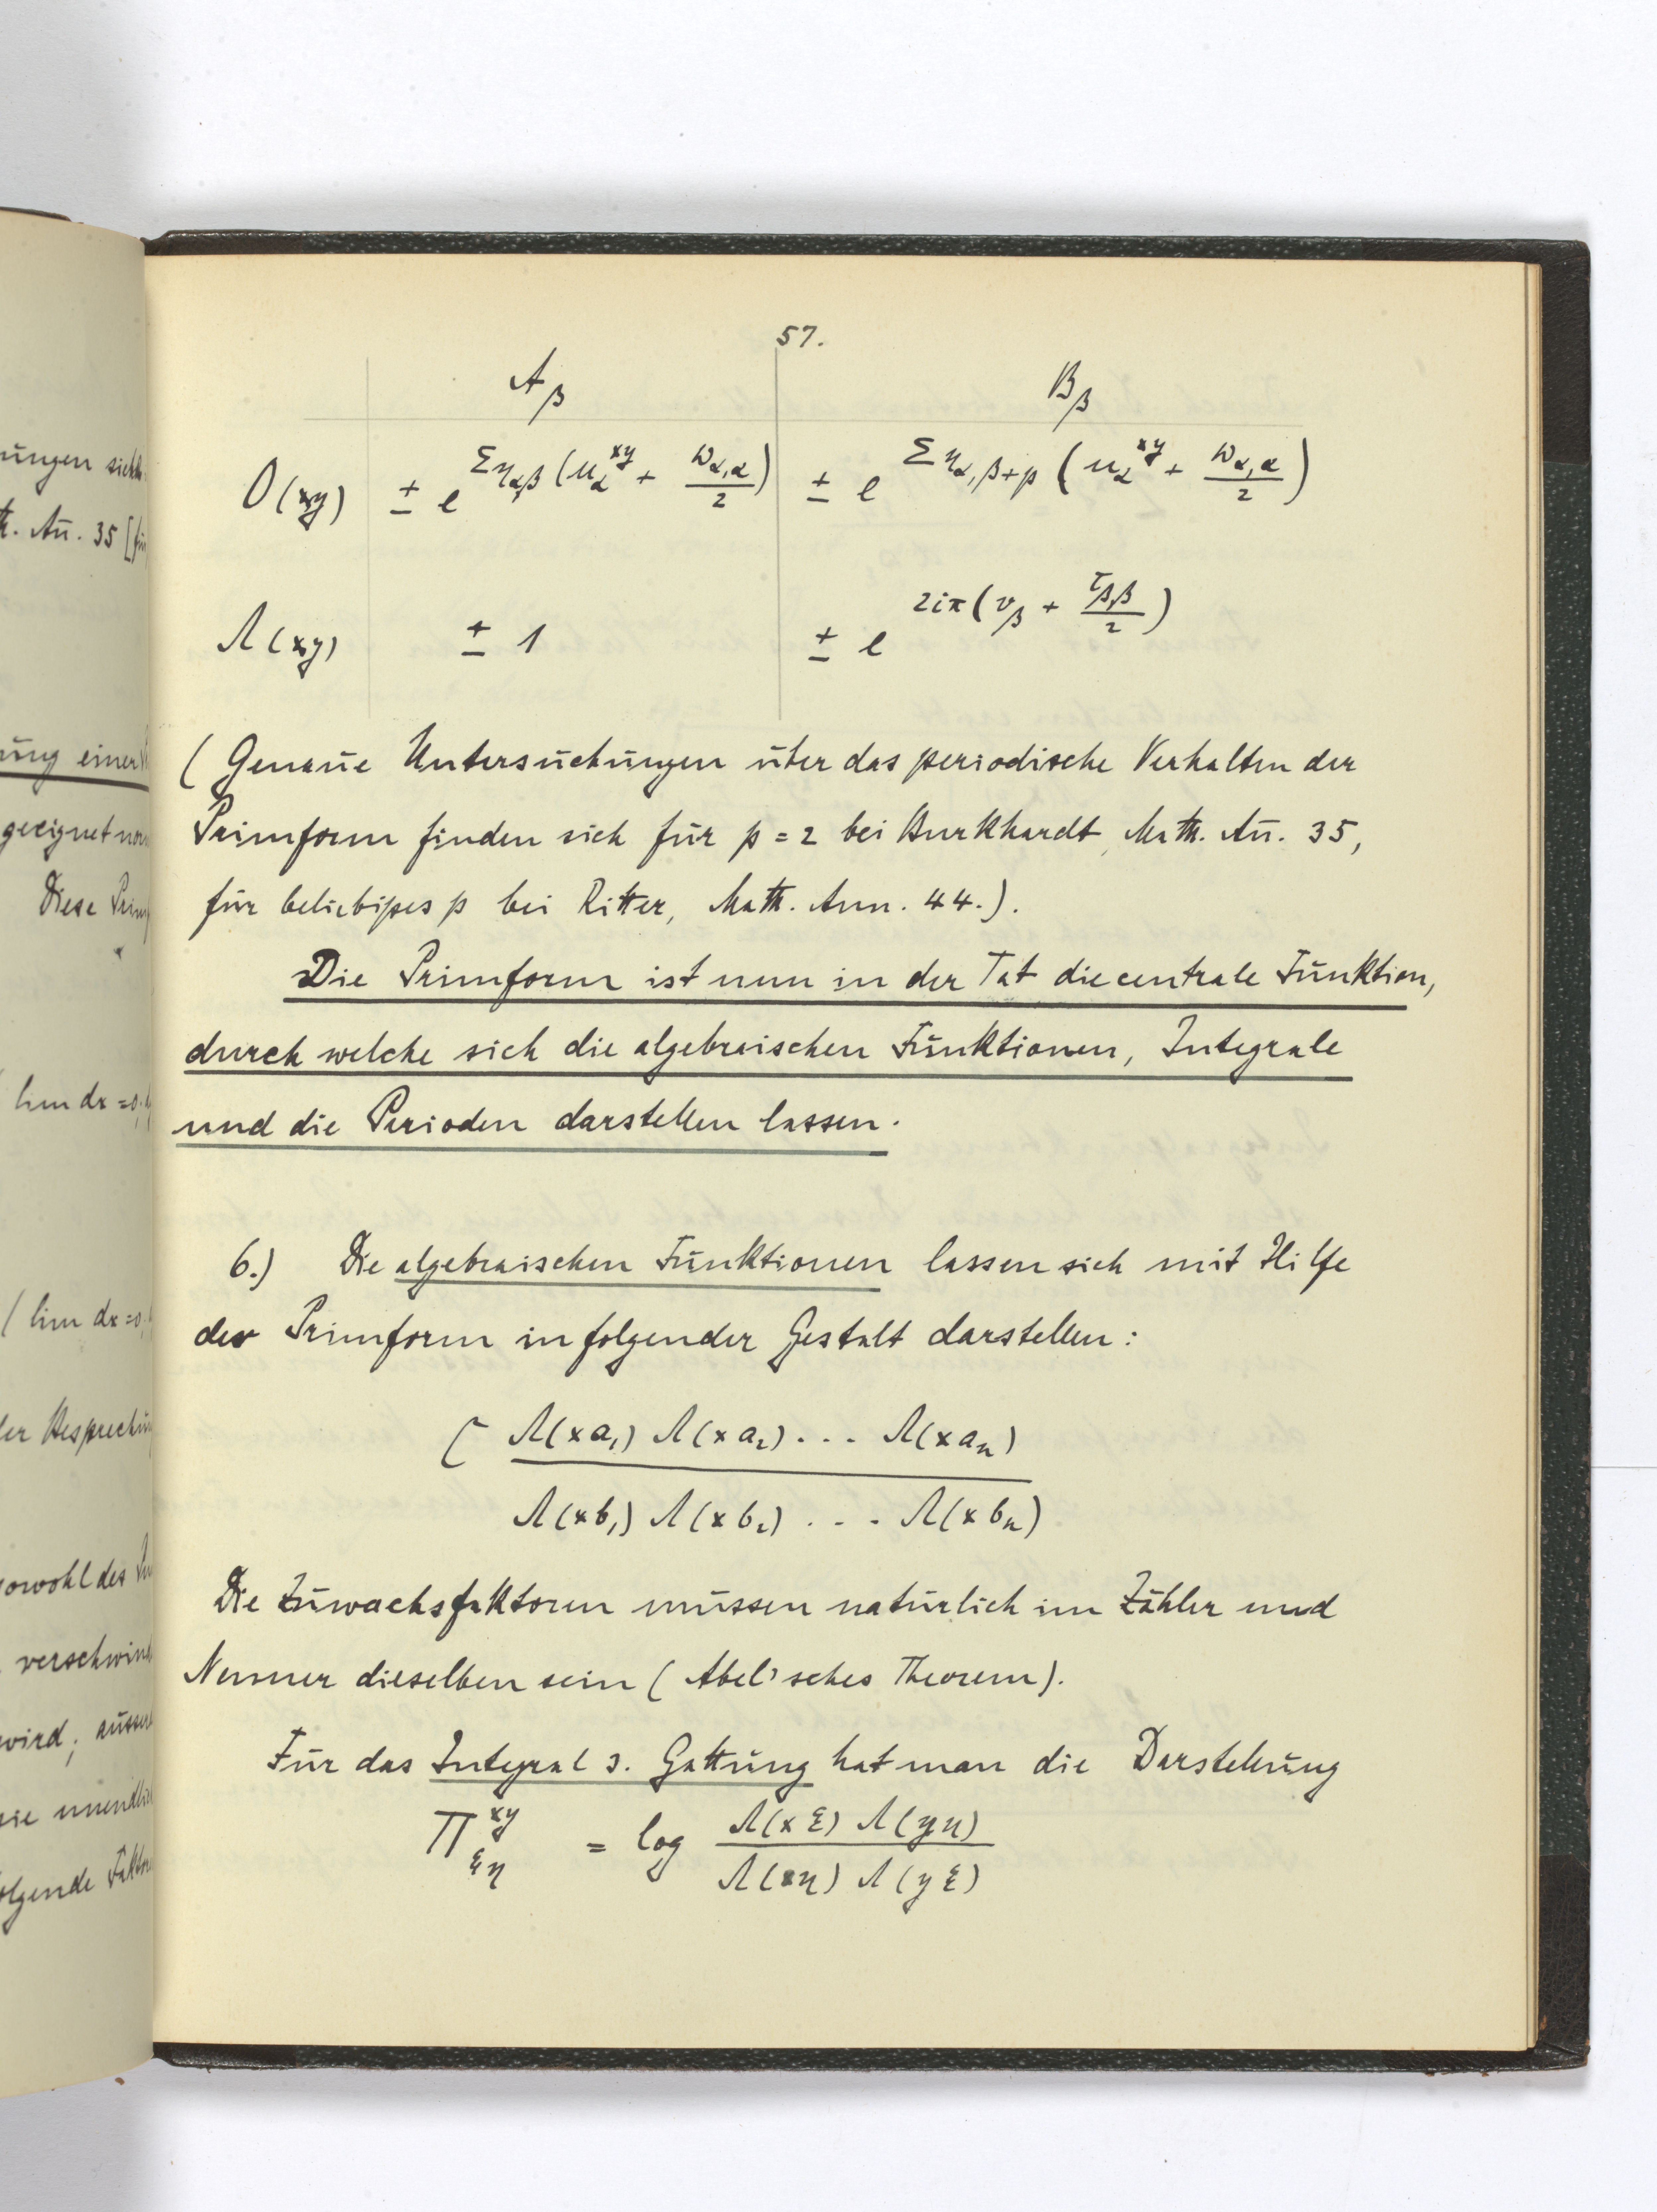 ungen sich
Math. Ann. 35 [für
ung einer
geeignet
Diese Prim
lim dx = 0,
( lim dx = 0,
der Besprechung
sowohl des
verschwind
wird; ausser
sie unendlich
folgende Faktor
57.
A_β B_β
O(xy) ± e^{Σ η_{α,β} (u_α^{xy} + ω_{α,α}/2)} ± e^{Σ η_{α,β+p} (u_α^{xy} + ω_{α,α}/2)}
Λ(xy) ± 1 ± e^{2iπ(v_β + τ_{β,β}/2)}
( Genaue Untersuchungen über das periodische Verhalten der
Primform finden sich für p = 2 bei Burkhardt, Math. Ann. 35,
für beliebiges p bei Ritter, Math. Ann. 44.).
Die Primform ist nun in der Tat die centrale Funktion,
durch welche sich die algebraischen Funktionen, Integrale
und die Perioden darstellen lassen.
6.) Die algebraischen Funktionen lassen sich mit Hilfe
der Primform in folgender Gestalt darstellen:
C Λ(xa₁) Λ(xa₂) . . . Λ(xaₙ)
Λ(xb₁) Λ(xb₂) . . . Λ(xbₙ)
Die Zuwachsfaktoren müssen natürlich im Zähler und
Nenner dieselben sein ( Abel'sches Theorem).
Für das Integral 3. Gattung hat man die Darstellung
Π_{ξη}^{xy} = log Λ(xξ) Λ(yη)
Λ(xη) Λ(yξ)